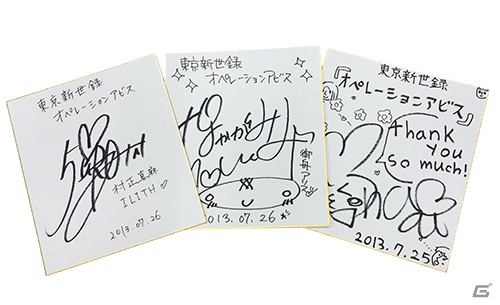 東京新世録
オペレーションアビス
村正真森
ILITH♡
2013.07.26
東京新世録
オペレーションアビス
御舟アリス
2013.07.26
東京新世録
『オペレーションアビス』
Thank
you
so much!
2013.7.25